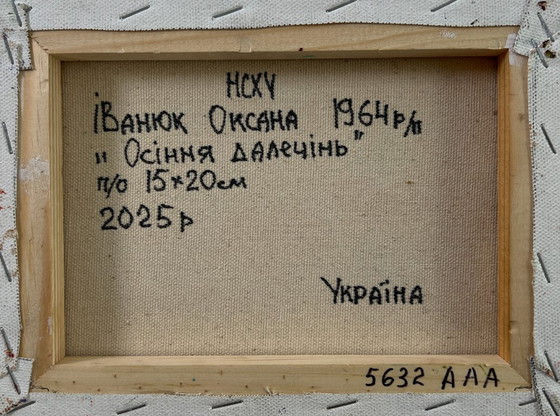 НСХУ
Іванюк Оксана 1964р/н
„ Осіння далечінь"
п/о 15×20см
2025р
Україна
5632 ААА